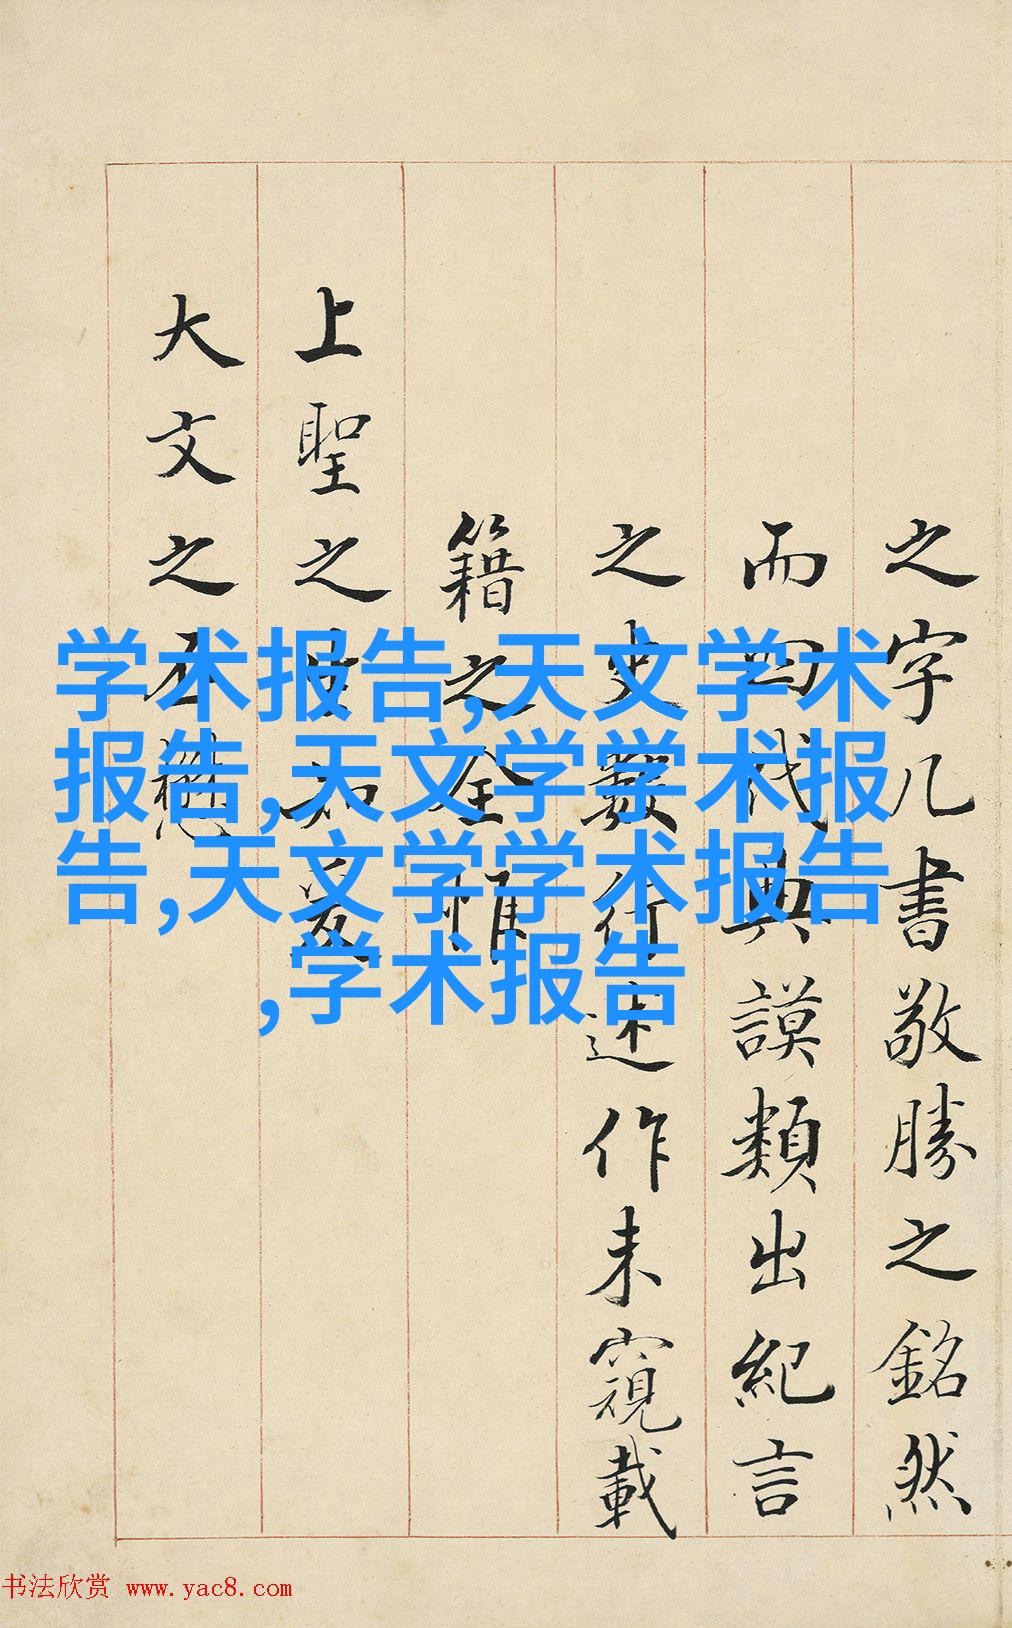 之字几書敬勝之銘然
而四代典謨類出紀言
之史數述作未窺載
籍之全惟
上聖之
大文之
学术报告,天文学术
报告,天文学学术报
告,天文学学术报告
,学术报告
书法欣赏 www.yac8.com